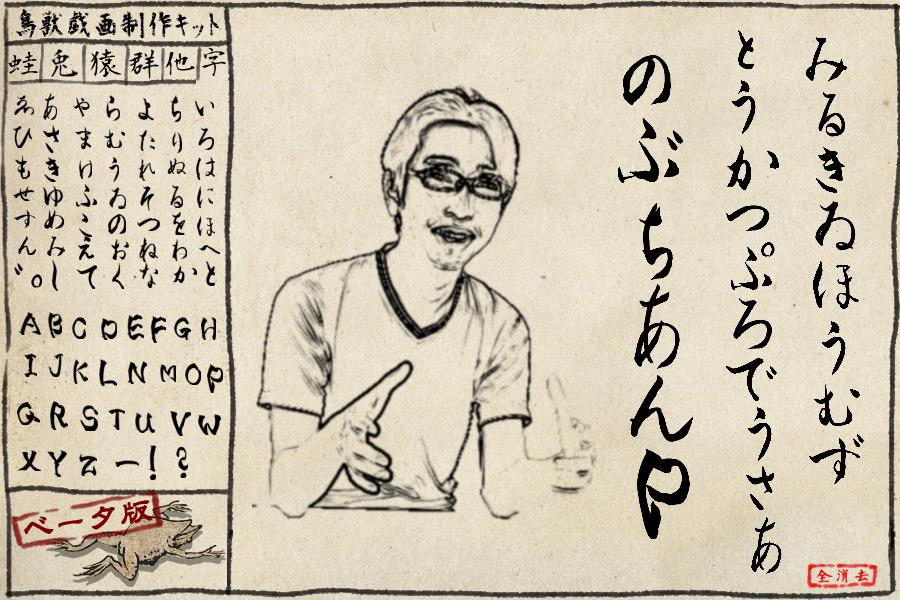 鳥獣戯画制作キット
蛙 兎 猿 群 他 字
いろはにほへと
ちりぬるをわか
よたれそつねな
らむうゐのおく
やまけふこえて
あさきゆめみし
ゑひもせすん゛。
A B C D E F G H
I J K L N M O P
Q R S T U V W
X Y Z ー ! ?
ベータ版
みるきゐほうむず
とうかつぷろでうさあ
のぶちあんP
全消去